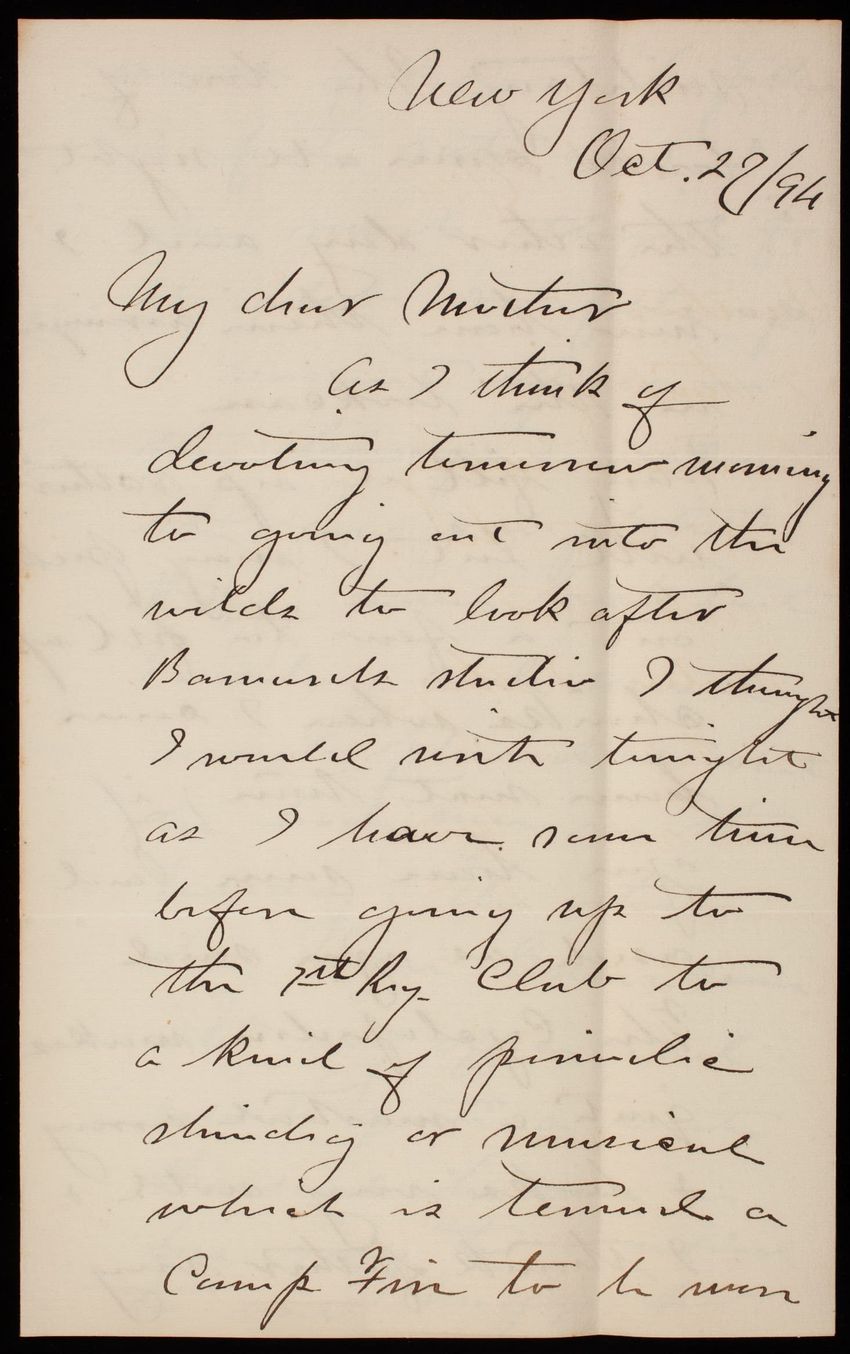 New York
Oct. 27/94
My dear Mother
As I think of
devoting tomorrow morning
to going out into the
wilds to look after
Barnards studio I thought
I would write tonight
as I have some time
before going up to
the 7th Reg. Club to
a kind of periodic
shindig or musical
which is termed a
Camp Fire to be more